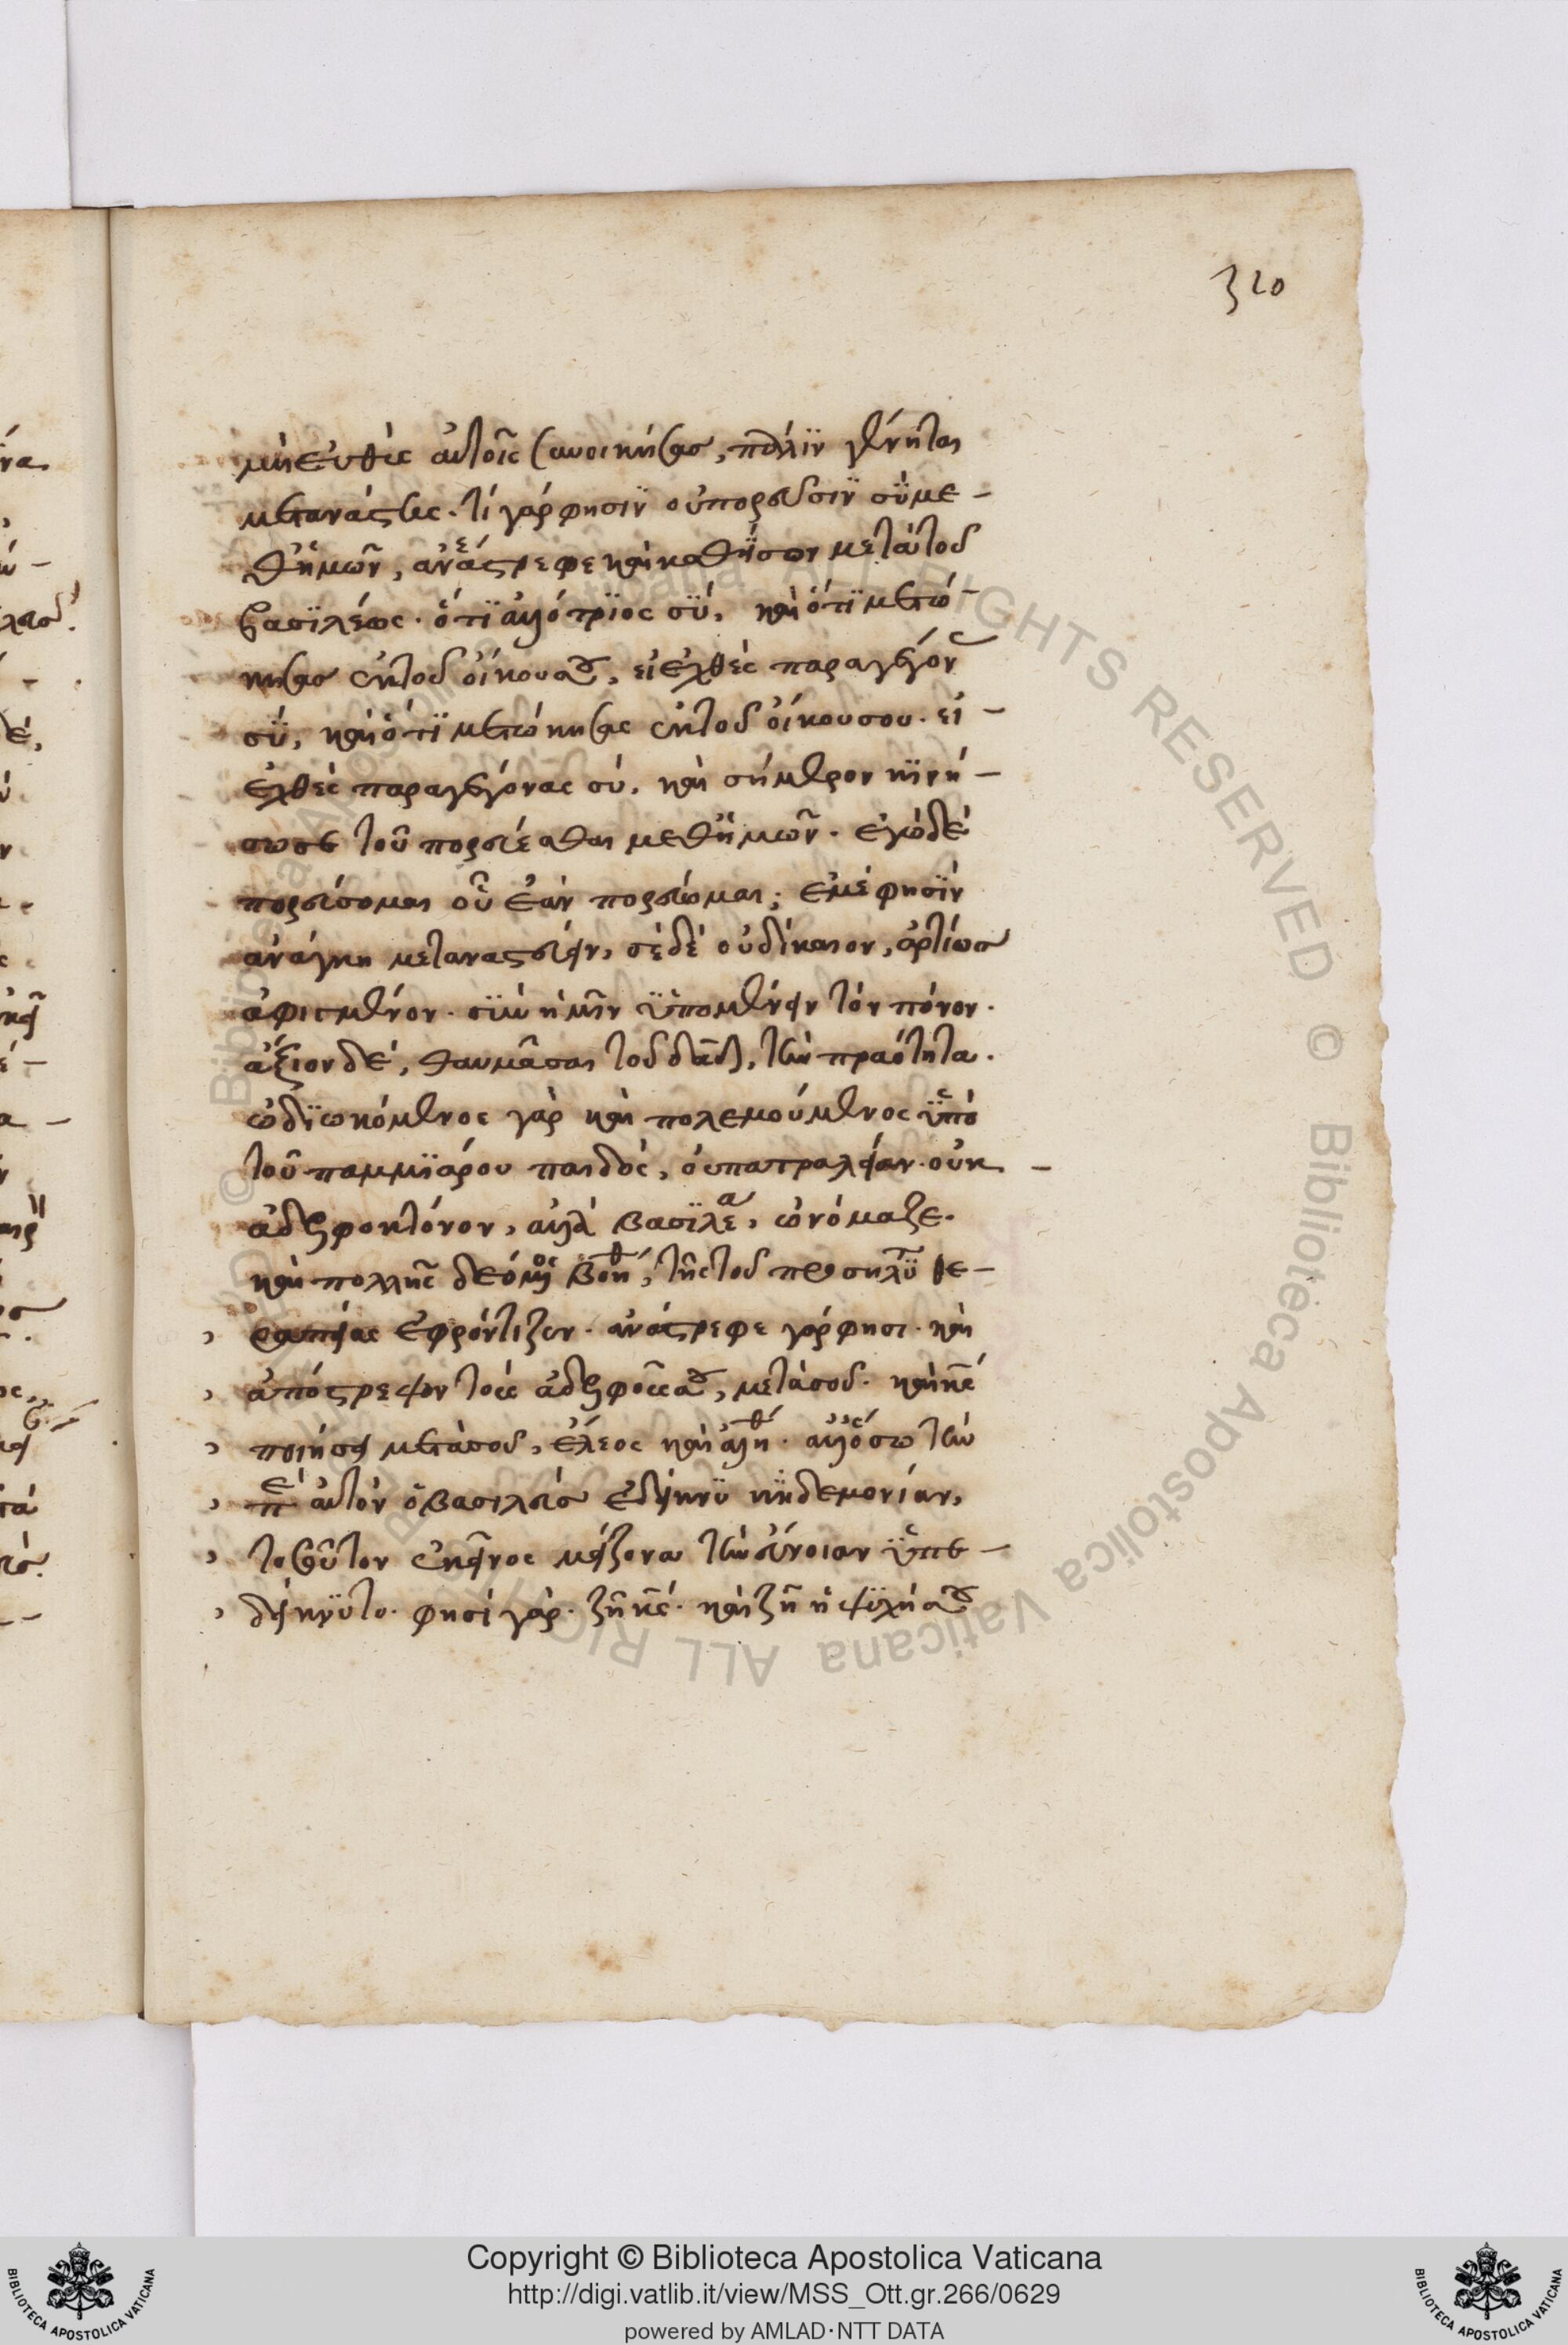 320
μὴ εὐθὺς αὐτοῖς συνοικήσας, πάλιν γένηται
μετανάστης. τί γάρ φησϊν οὐ πορεύσϊν σὺ με -
θἡμῶν, ἀνάστρεφε καὶ κάθϊσον μετὰ τοῦ
βασϊλέως. ὅτϊ ἀλλότρϊος σὺ, καὶ ὅτϊ μετώ -
κησας ἐκ τοῦ οἴκου σου, εἰ ἐχθὲς παραγέγονας
σὺ, καὶ ὅτϊ μετώκησας ἐκ τοῦ οἴκου σου. εἰ -
ἐχθὲς παραγέγονας σύ. καὶ σήμερον κϊνή -
σω σε τοῦ πορεύεσθαι μεθἡμῶν. ἐγὼ δὲ
πορεύσομαι οὗ ἐὰν πορεύωμαι; ἐμέ φησϊν
ἀνάγκη μεταναστεύειν, σὲ δὲ οὐ δίκαιον, ἀρτίως
ἀφιγμένον. σὺν ἡμῖν ὑπομένειν τὸν πόνον.
ἄξιον δὲ, θαυμάσαι τοῦ δαδ, τὴν πραότητα.
ὡδϊωκόμενος γὰρ καὶ πολεμούμενος ὑπὸ
τοῦ παμμϊάρου παιδὸς, οὐ πατραλοίαν. οὐκ -
ἀδελφοκτόνον, ἀλλὰ βασϊλέα, ὠνόμαζε.
καὶ πολλῆς δεόμενος βοηθ, τῆς τοῦ προσηλυ θε -
ραπείας ἐφρόντιζεν. ἀνάστρεφε γάρ φησι. καὶ
ἀπόστρεψον τοὺς ἀδελφούς σου, μετὰ σοῦ. καὶ κς
ποιήσει μετὰ σοῦ, ἔλεος καὶ ἀληθ. ἀλλ' ὅσω τὴν
πε αὐτὸν ὁ βασιλεὺς ἐδείκνυ κηδεμονίαν,
τοσοῦτον ἐκεῖνος μείζονα τὴν εὔνοιαν ὑπε -
δείκνυτο. φησὶ γάρ. ζῆ κς. καὶ ζῆ ἡ ψϋχή σου
Copyright © Biblioteca Apostolica Vaticana
http://digi.vatlib.it/view/MSS_Ott.gr.266/0629
powered by AMLAD·NTT DATA
BIBLIOTECA APOSTOLICA VATICANA
BIBLIOTECA APOSTOLICA VATICANA